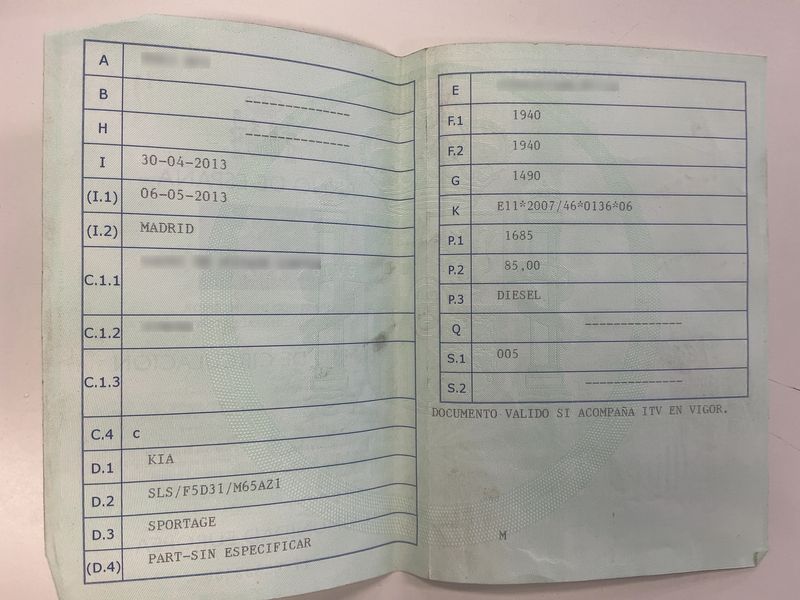 A
B -------------
H -------------
I 30-04-2013
(I.1) 06-05-2013
(I.2) MADRID
C.1.1
C.1.2
C.1.3
C.4 c
D.1 KIA
D.2 SLS/F5D31/M65AZ1
D.3 SPORTAGE
(D.4) PART-SIN ESPECIFICAR
E
F.1 1940
F.2 1940
G 1490
K E11*2007/46*0136*06
P.1 1685
P.2 85,00
P.3 DIESEL
Q -------------
S.1 005
S.2 -------------
DOCUMENTO VALIDO SI ACOMPAÑA ITV EN VIGOR.
M